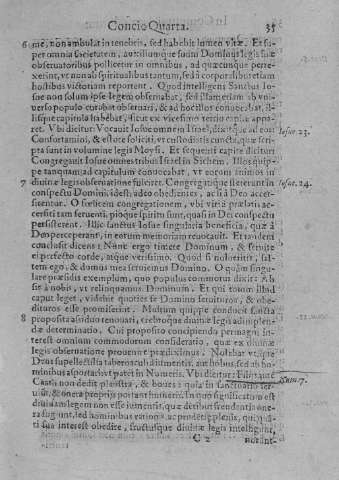 Concio Quarta. 35
6 me, non ambulat in tenebris, sed habebit lumen vitæ. Et su-
per omnia societatem, auxiliumque suum Dominus legis suæ
observatoribus pollicetur in omnibus, ad quæcunque perre-
xerint, vt non ab spiritualibus tantum, sed à corporalibus etiam
hostibus victoriam reportent. Quod intelligens Sanctus Io-
sue non solùm ipse legem observabat, sed illam etiam ab vni-
verso populo curabat observari, & ad hoc illos convocabat, il-
lisque capitula habebat, sicut ex vicesimo tertio capite appa-
ret. Vbi dicitur: Vocavit Iosue omnem Israel, dixitque ad eos: Iosue. 23.
Confortamini, & estote soliciti, vt custodiatis cuncta, quæ scri-
pta sunt in volumine legis Moysi. Et sequenti capite dicitur:
Congregavit Iosue omnes tribus Israel in Sichem. Illos quip-
pe tanquam ad capitulum convocabat, vt eorum animos in
7 divinæ legis observatione fulciret. Congregatique steterunt in Iosue. 24.
conspectu Domini, idest, adeo obedientes, ac si à Deo acces-
siretur. O fœlicem congregationem, vbi viri prælati ac-
cersiti tam ferventi, pioque spiritu sunt, quasi in Dei conspectu
persisterent. Illic sanctus Iosue singularia beneficia, quæ à
Deo perceperant, in eorum memoriam revocavit. Et tandem
conclusit dicens: Nunc ergo timete Dominum, & servite
ei perfecto corde, atque verissimo. Quod si nolueritis, sal-
tem ego, & domus mea serviemus Domino. O quàm singu-
lare præsidis exemplum, quo populus commotus dixit: Ab
sit à nobis, vt relinquamus Dominum. Et qui totum illud
caput leget, videbit quoties se Domino servituros, & obe-
dituros esse promiserint. Multum quippe conducit sancta
8 proposita assiduo renovari, crebroque divinæ legis adimplen-
dæ determinatio. Cui proposito concipiendo permagni in-
terest omnium commodorum consideratio, quæ ex divinæ
legis observatione provenire prædiximus. Nolebat vtique
Deus supellectilia tabernaculi ditmentis, aut bobus, sed ab ho-
minibus asportari, vt patet in Numeris. Vbi dicitur: Filiis autē Num. 7.
Caath non dedit plaustra, & boves: quia in sanctuario ser-
viunt, & onera propriis portant humeris. In quo significatum est
divinam legem non esse iumentis, quæ deribus frendentia one-
ra fugiunt, sed hominibus ratione, ac prudentia plenis, qui quā-
ti sua interest obedire, fructusque divinæ legis intelligunt,
C 2 notant-